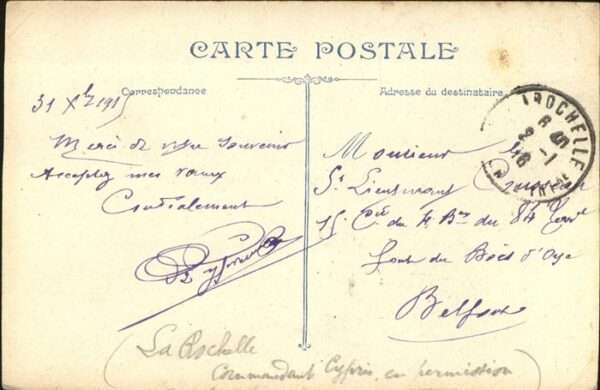 CARTE POSTALE
Correspondance
Adresse du destinataire
31 Xbre 1915
Merci de votre souvenir
Acceptez mes vœux
Cordialement
Monsieur le
St Lieutenant
15e Cie du 4e Bon du 84 Terri
fort du Bois d'Oye
Belfort
LA ROCHELLE
(La Rochelle
Commandant Cypris, en permission)